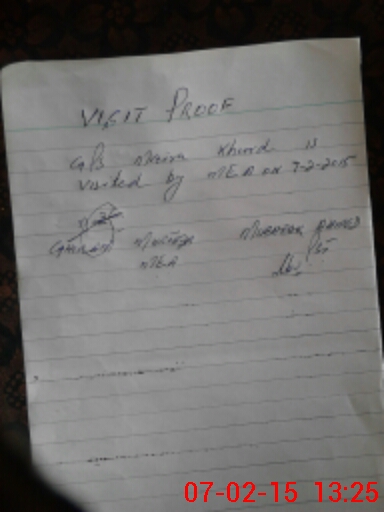 VISIT PROOF
GPS Maira Khurd is
visited by MEA on 7-2-2015
Ghulam Mustafa Mubarak Ahmed
MEA PST
07-02-15 13:25